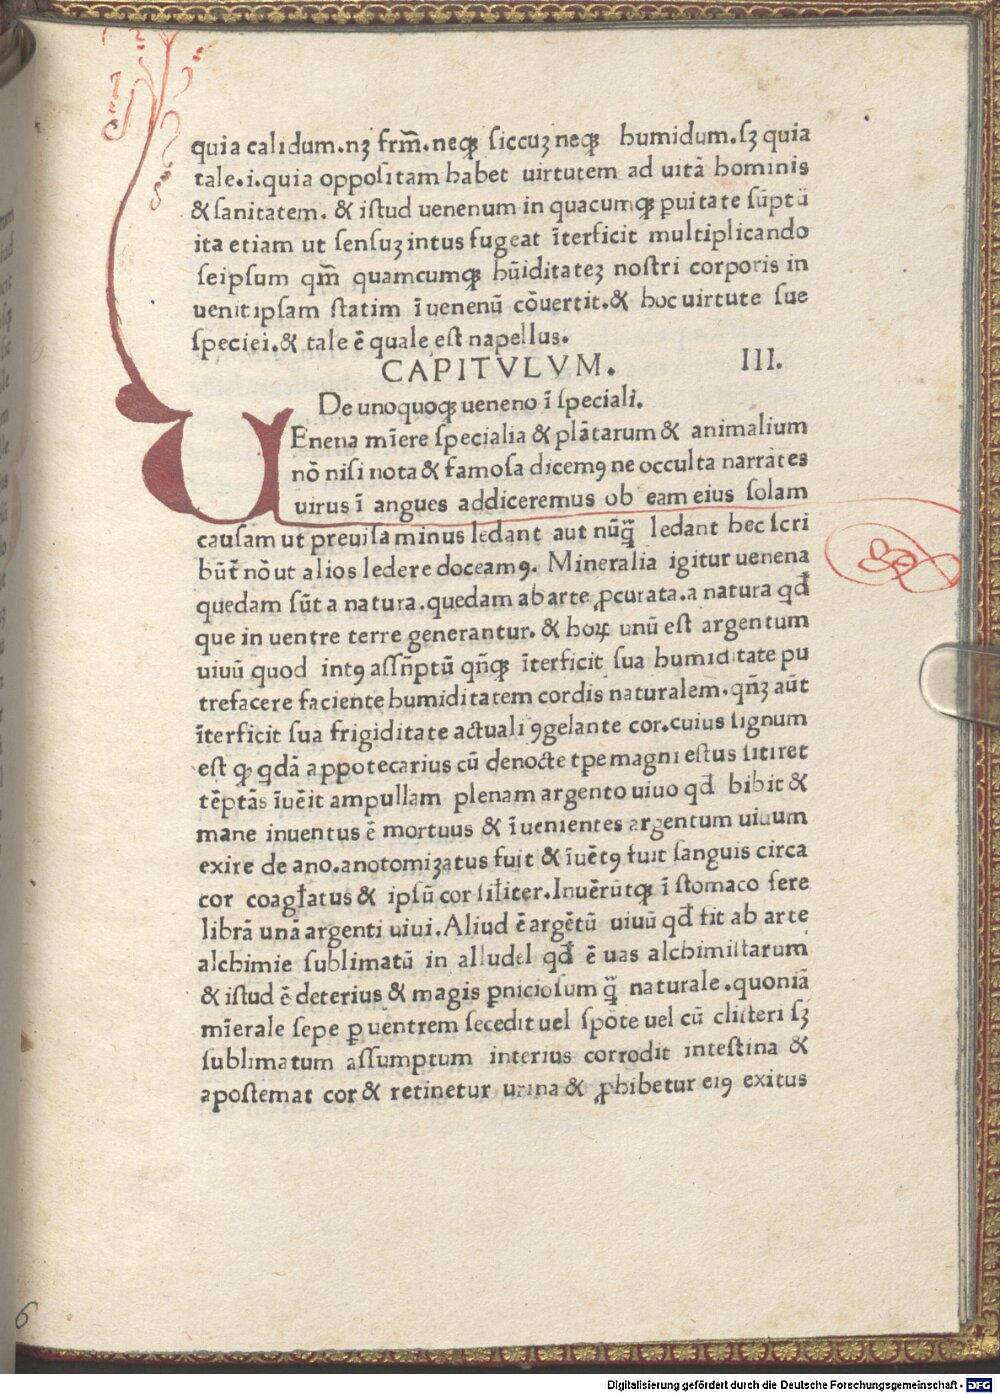 quia calidum.nꝫ frm̄.neqꝫ ſiccuꝫ neqꝫ humidum.ſꝫ quia
tale.i.quia oppoſitam habet uirtutem ad uitā hominis
& ſanitatem. & iſtud uenenum in quacumqꝫ ꝑuitate ſūptū
ita etiam ut ſenſuꝫ intus fugeat īterficit multiplicando
ſeipſum qm̄ quamcumqꝫ hūiditateꝫ noſtri corporis in
uenit ipſam ſtatim ī uenenū cōuertit.& hoc uirtute ſue
ſpeciei.& tale ē quale eſt napellus.
CAPITVLVM. III.
De unoquoqꝫ ueneno ī ſpeciali.
UEnena mīere ſpecialia & plātarum & animalium
nō niſi nota & famoſa dicemꝯ ne occulta narrātes
uirus ī angues addiceremus ob eam eius ſolam
cauſam ut preuiſa minus ledant aut nūq̄ ledant hec ſcri
būt̄ nō ut alios ledere doceamꝯ. Mineralia igitur uenena
quedam ſūt a natura.quedam ab arte ꝓcurata.a natura qđ
que in uentre terre generantur.& hoꝝ unū eſt argentum
uiuū quod intꝯ aſſūptū qn̄qꝫ īterficit ſua humiditate pu
trefacere faciente humiditatem cordis naturalem.qn̄ꝫ aūt
īterficit ſua frigiditate actuali ꝯgelante cor.cuius ſignum
eſt qꝫ qdā appotecarius cū denocte tpe magni eſtus ſitiret
tēptās īuēit ampullam plenam argento uiuo qđ bibit &
mane inuentus ē mortuus & īuenientes argentum uiuum
exire de ano.anotomiꝫatus fuit & īuētꝯ fuit ſanguis circa
cor coagłatus & ipſū cor ſiłiter.Inuērūtqꝫ ī ſtomaco fere
librā unā argenti uiui.Aliud ē argētū uiuū qđ fit ab arte
alchimie ſublimatū in alludel qđ ē uas alchimiſtarum
& iſtud ē deterius & magis ꝑnicioſum q̄ naturale.quoniā
mīerale ſepe ꝑ uentrem ſecedit uel ſpōte uel cū cliſteri ſꝫ
ſublimatum aſſumptum interius corrodit inteſtina &
apoſtemat cor & retinetur urina & ꝓhibetur eiꝯ exitus
6
Digitalisierung gefördert durch die Deutsche Forschungsgemeinschaft - DFG